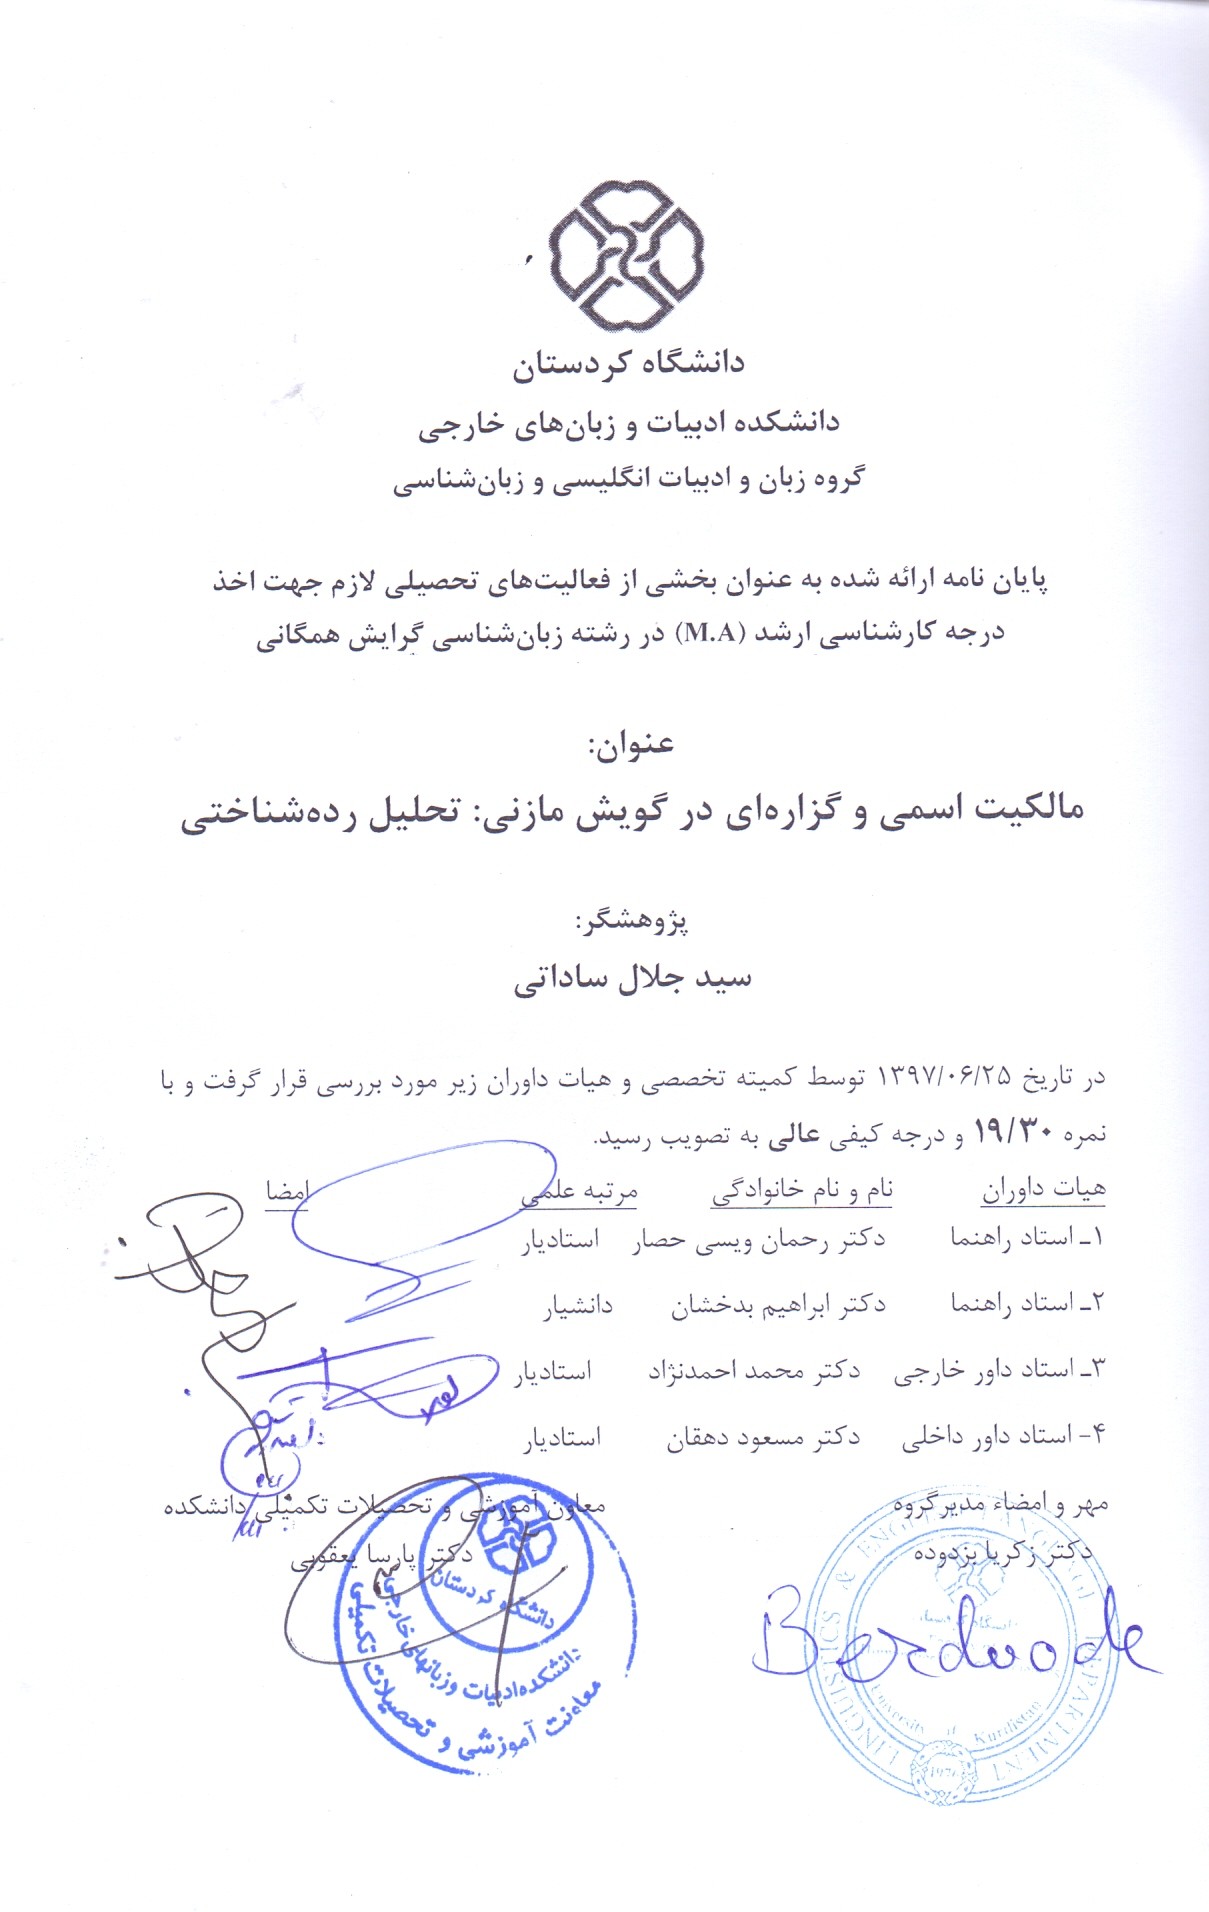 دانشگاه کردستان
دانشکده ادبیات و زبان‌های خارجی
گروه زبان و ادبیات انگلیسی و زبان‌شناسی
پایان نامه ارائه شده به عنوان بخشی از فعالیت‌های تحصیلی لازم جهت اخذ
درجه کارشناسی ارشد (M.A) در رشته زبان‌شناسی گرایش همگانی
عنوان:
مالکیت اسمی و گزاره‌ای در گویش مازنی: تحلیل رده‌شناختی
پژوهشگر:
سید جلال ساداتی
در تاریخ ۱۳۹۷/۰۶/۲۵ توسط کمیته تخصصی و هیات داوران زیر مورد بررسی قرار گرفت و با
نمره ۱۹/۳۰ و درجه کیفی عالی به تصویب رسید.
هیات داوران نام و نام خانوادگی مرتبه علمی امضا
۱ـ استاد راهنما دکتر رحمان ویسی حصار استادیار
۲ـ استاد راهنما دکتر ابراهیم بدخشان دانشیار
۳ـ استاد داور خارجی دکتر محمد احمدنژاد استادیار
۴- استاد داور داخلی دکتر مسعود دهقان استادیار
مهر و امضاء مدیر گروه معاون آموزشی و تحصیلات تکمیلی دانشکده
دکتر زکریا بزدوده دکتر پارسا یعقوبی
Bezdoode
دانشگاه کردستان
دانشکده ادبیات و زبانهای خارجی
معاونت آموزشی و تحصیلات تکمیلی
University of Kurdistan